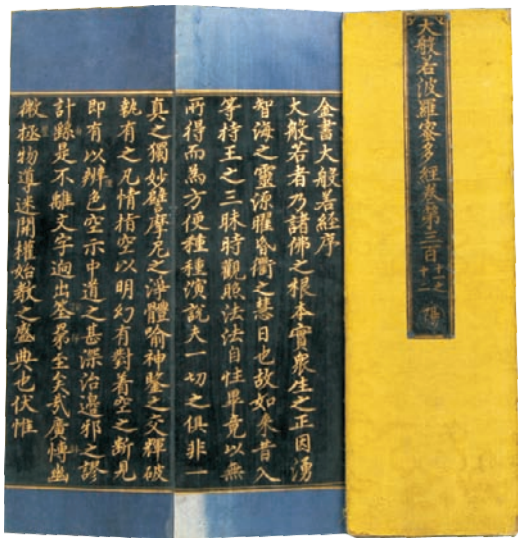 大般若波羅蜜多經卷第三百
十一之
十二
金書大般若經序
大般若者乃諸佛之根本實衆生之正因湧
智海之靈源曜昏衢之慧日也故如来昔入
等持王之三昧時觀照法法自性畢竟以無
所得而為方便種種演説夫一切之俱非一
真之獨妙譬摩尼之淨體喻神鑒之交輝破
執有之凡情指空以明幻有對着空之斷見
即有以辨色空示中道之甚深治邊邪之謬
計繇是不離文字逈出筌罤至矣哉廣博幽
微極物導迷開權始教之盛典也伏惟